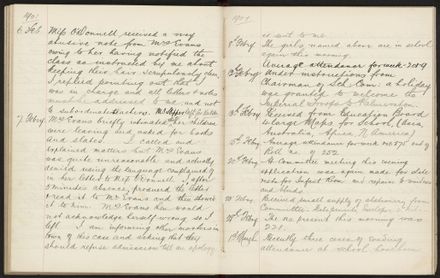 1901
6 Feb. Miss O'Donnell received a very
abusive note from Mrs Evans
owing to her having notified the
class as instructed by me about
keeping their hair scrupulously clean.
I replied pointing out that I
was in charge and all letters & notes
must be addressed to me and not
to subordinate teachers.
7 Febry. Mrs Evans briefly intimated her children
were leaving and asked for books
and slates. I called and
explained matters but Mrs Evans
was quite unreasonable and actually
denied using the language complained of
in her letter to Miss O'Donnell. After
5 minutes absence, procured the letter
& read it to Mrs Evans and then showed
it to her. Mrs Evans then would
not acknowledge herself wrong so I
left. I am informing other masters in
town of this case and asking that they
should refuse admission till an apology
1901
is sent to me.
The girls named above are in school
again this morning.
Average attendance for week 204
Under instructions from
Chairman of Sch. Com. a holiday
was granted to welcome the
Imperial Troops to Palmerston.
Received from Education Board
4 large Maps for school (Asia,
Australia, Africa, N. America)
Average attendance for week
Roll no.
At Committee meeting this evening
application was again made for slate
and blinds.
Received small supply of stationery from
Committee
The no present this morning was
221.
Recently three cases of
attendance at school